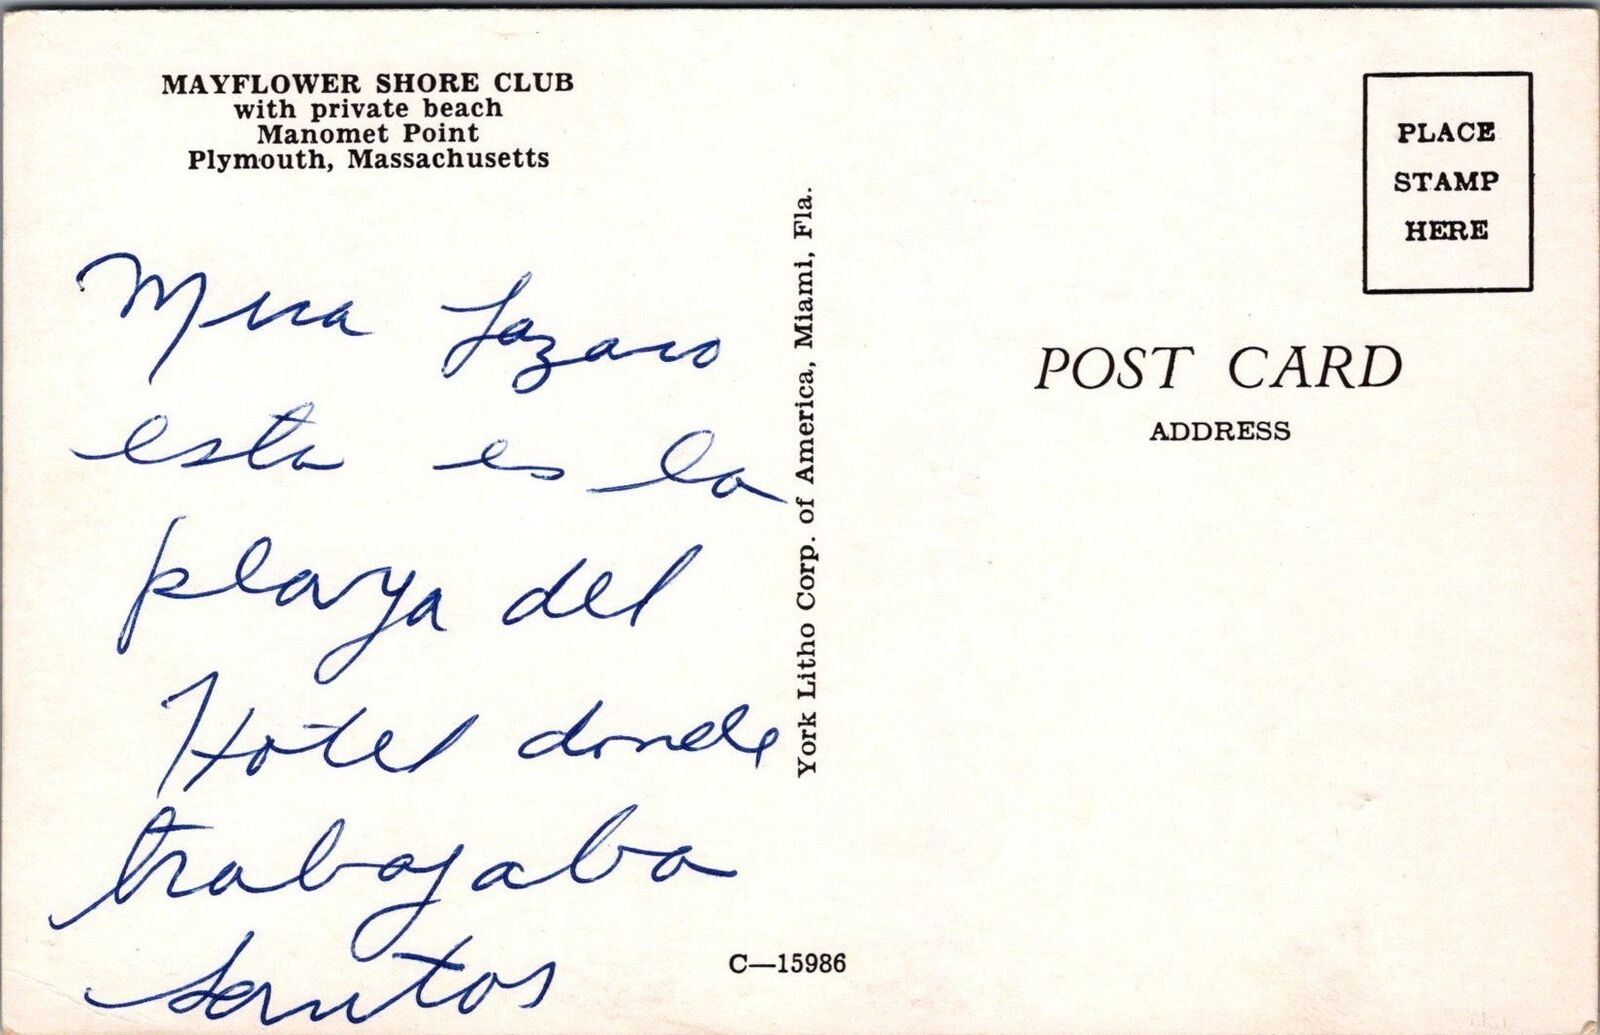 MAYFLOWER SHORE CLUB
with private beach
Manomet Point
Plymouth, Massachusetts
Mira Lazaro
esta es la
playa del
Hotel donde
trabajaba
Santos
C—15986
York Litho Corp. of America, Miami, Fla.
PLACE
STAMP
HERE
POST CARD
ADDRESS